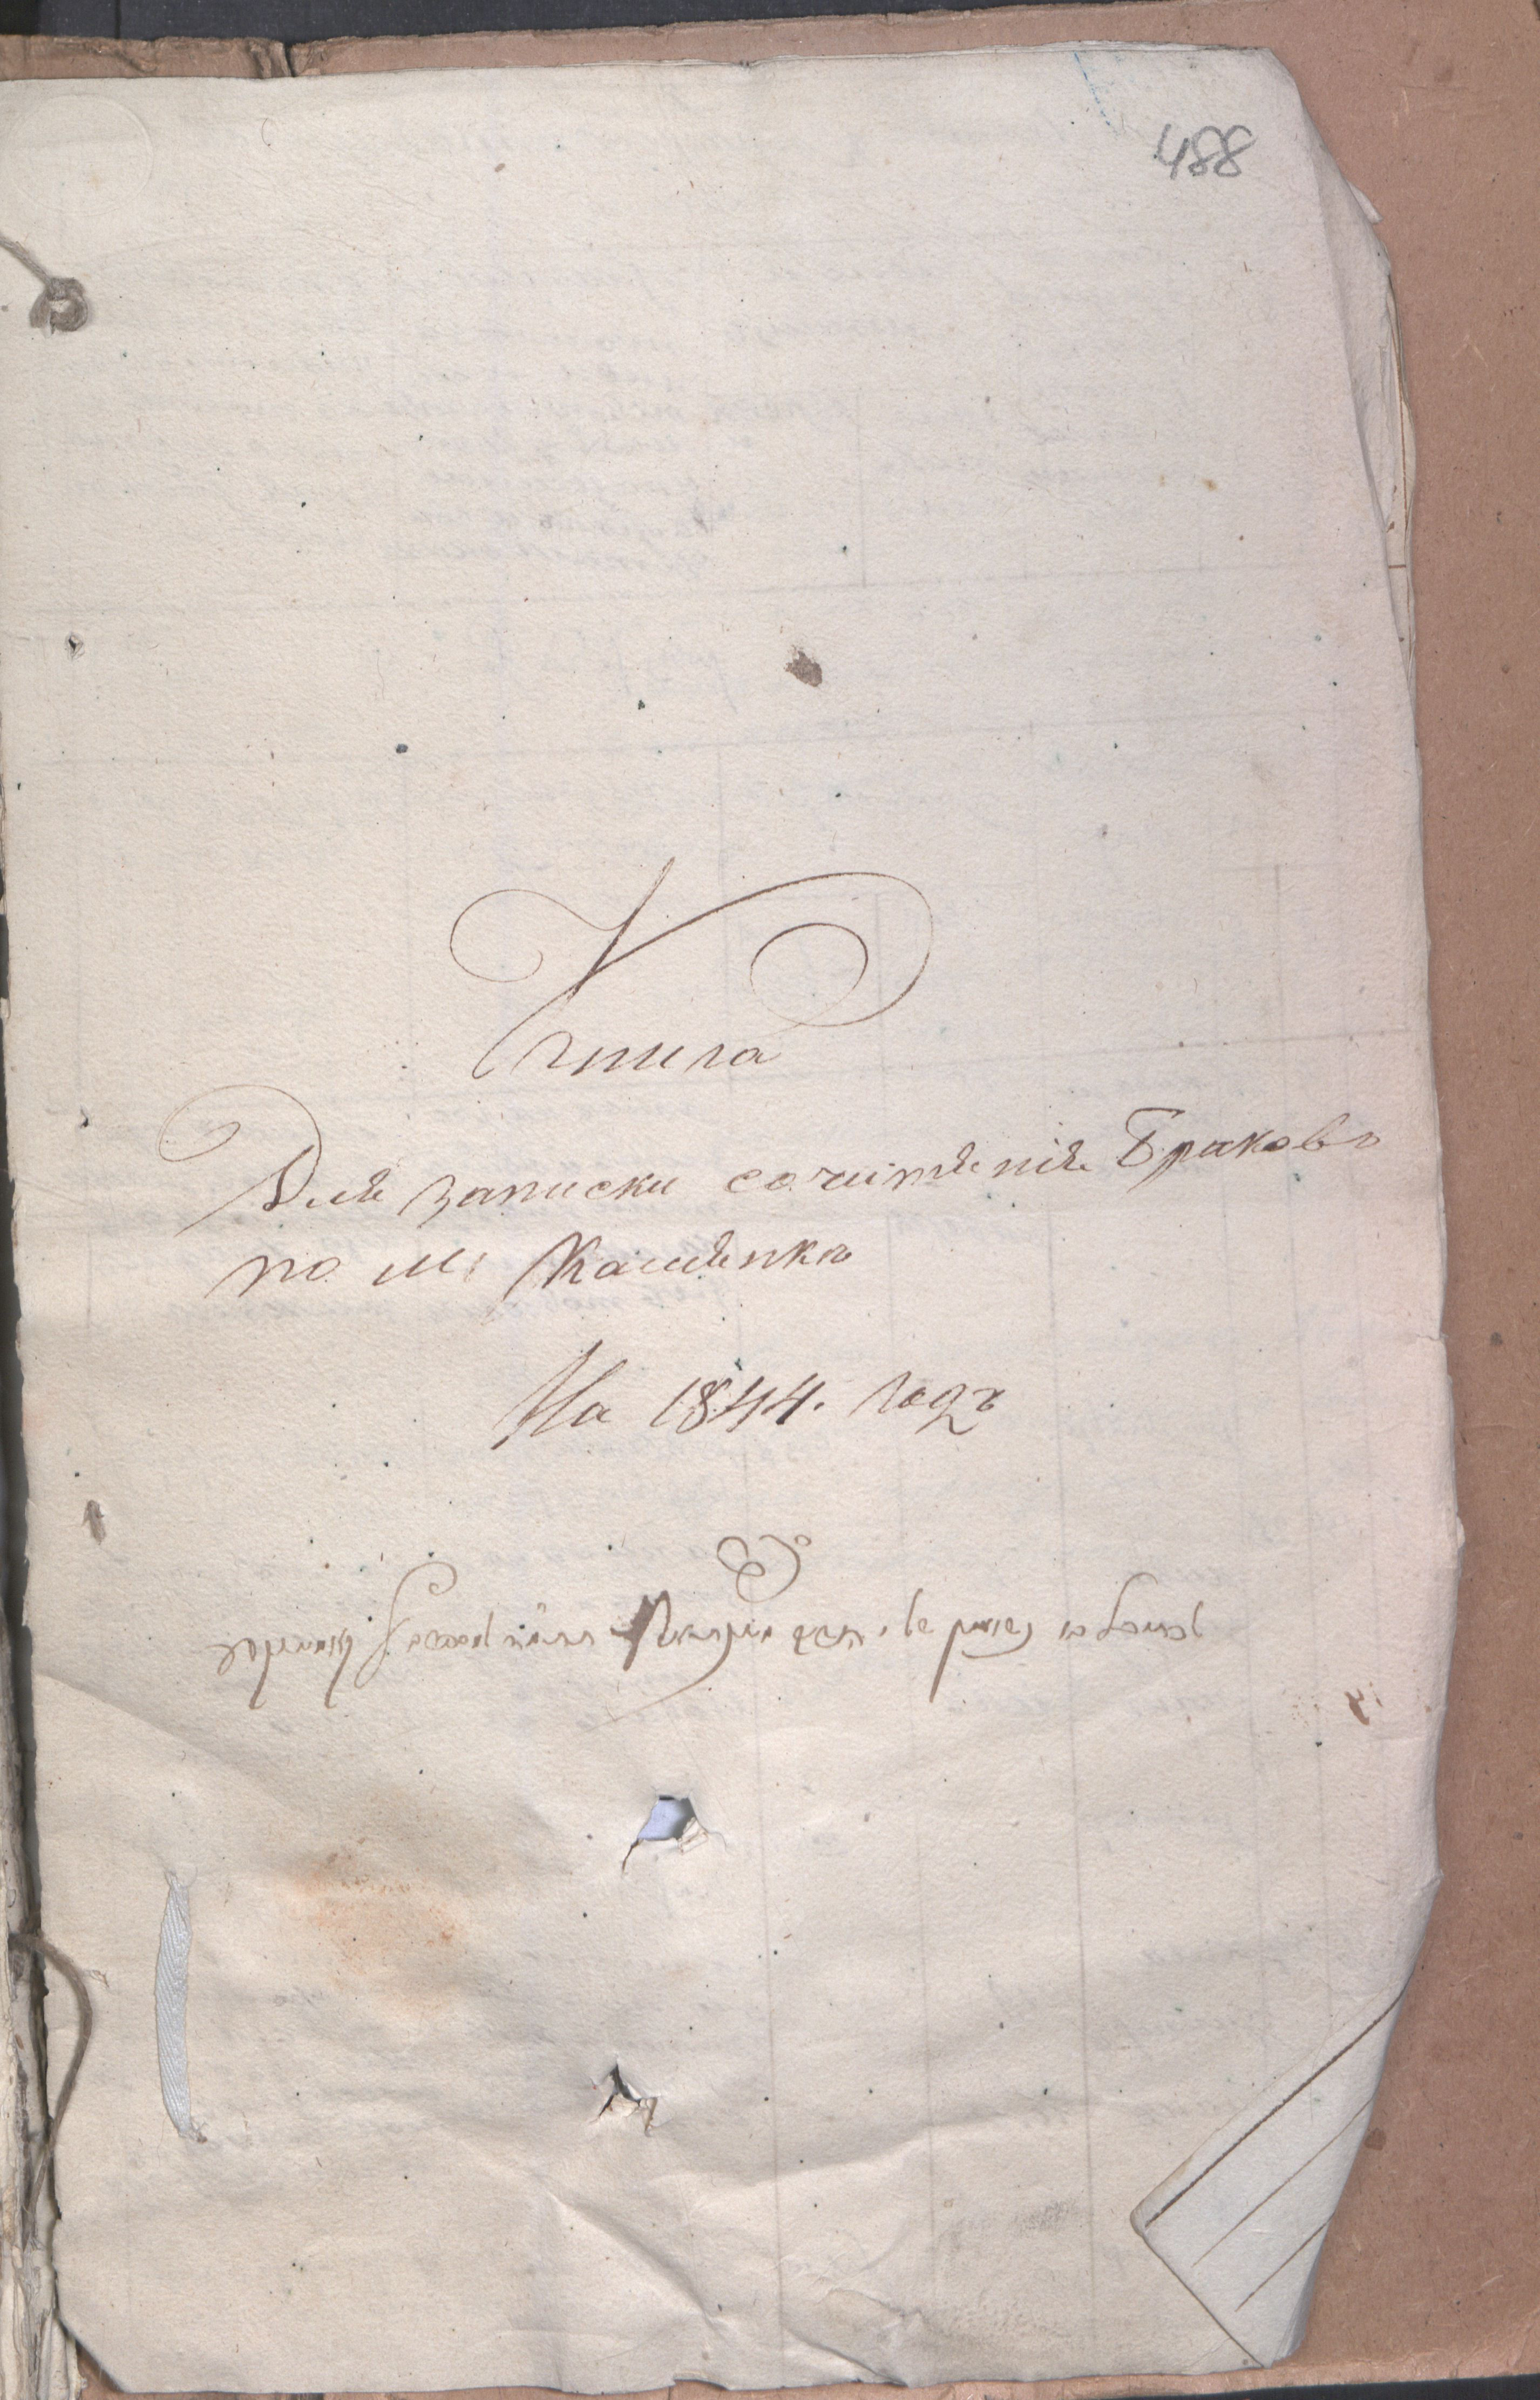 488
Книга
Для записки сочитанія Браковъ
по м. Каменкъ
На 1844. годъ